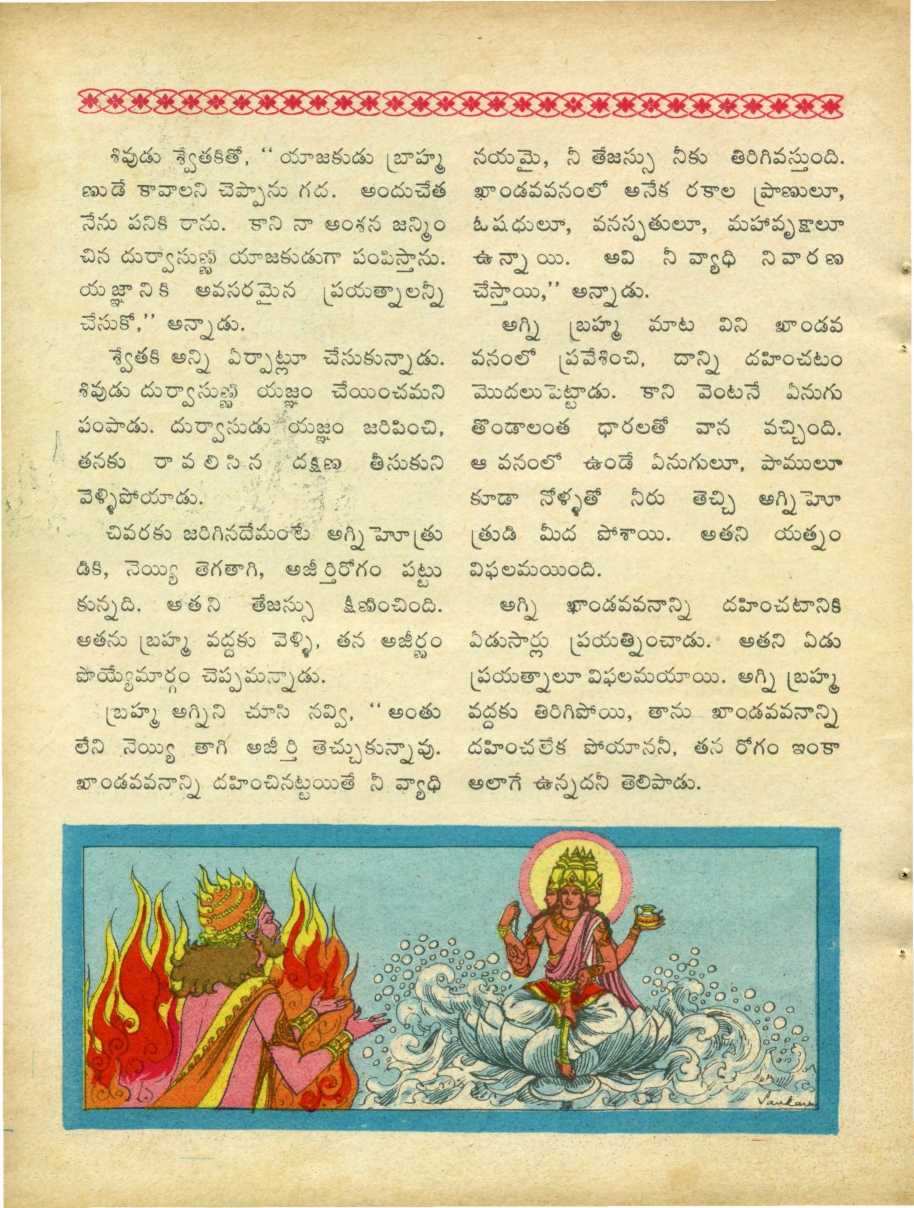 శివుడు శ్వేతకితో, ‘‘ యాజకుడు బ్రాహ్మ
ణుడే కావాలని చెప్పాను గద. అందుచేత
నేను పనికి రాను. కాని నా అంశన జన్మిం
చిన దుర్వాసుణ్ణి యాజకుడుగా పంపిస్తాను.
యజ్ఞానికి అవసరమైన ప్రయత్నాలన్నీ
చేసుకో,’’ అన్నాడు.
శ్వేతకి అన్ని ఏర్పాట్లూ చేసుకున్నాడు.
శివుడు దుర్వాసుణ్ణి యజ్ఞం చేయించమని
పంపాడు. దుర్వాసుడు యజ్ఞం జరిపించి,
తనకు రావలిసిన దక్షిణ తీసుకుని
వెళ్ళిపోయాడు.
చివరకు జరిగినదేమంటే అగ్నిహెూత్రు
డికి, నెయ్యి తెగతాగి, అజీర్తిరోగం పట్టు
కున్నది. అతని తేజస్సు క్షీణించింది.
అతను బ్రహ్మ వద్దకు వెళ్ళి, తన అజీర్ణం
పొయ్యేమార్గం చెప్పమన్నాడు.
బ్రహ్మ అగ్నిని చూసి నవ్వి, ‘‘ అంతు
లేని నెయ్యి తాగి అజీర్తి తెచ్చుకున్నావు.
ఖాండవవనాన్ని దహించినట్టయితే నీ వ్యాధి
నయమై, నీ తేజస్సు నీకు తిరిగివస్తుంది.
ఖాండవవనంలో అనేక రకాల ప్రాణులూ,
ఓషధులూ, వనస్పతులూ, మహావృక్షాలూ
ఉన్నాయి. అవి నీ వ్యాధి నివారణ
చేస్తాయి,’’ అన్నాడు.
అగ్ని బ్రహ్మ మాట విని ఖాండవ
వనంలో ప్రవేశించి, దాన్ని దహించటం
మొదలుపెట్టాడు. కాని వెంటనే ఏనుగు
తొండాలంత ధారలతో వాన వచ్చింది.
ఆ వనంలో ఉండే ఏనుగులూ, పాములూ
కూడా నోళ్ళతో నీరు తెచ్చి అగ్నిహెూ
త్రుడి మీద పోశాయి. అతని యత్నం
విఫలమయింది.
అగ్ని ఖాండవవనాన్ని దహించటానికి
ఏడుసార్లు ప్రయత్నించాడు. అతని ఏడు
ప్రయత్నాలూ విఫలమయాయి. అగ్ని బ్రహ్మ
వద్దకు తిరిగిపోయి, తాను ఖాండవవనాన్ని
దహించలేక పోయాననీ, తన రోగం ఇంకా
అలాగే ఉన్నదనీ తెలిపాడు.
Sankar